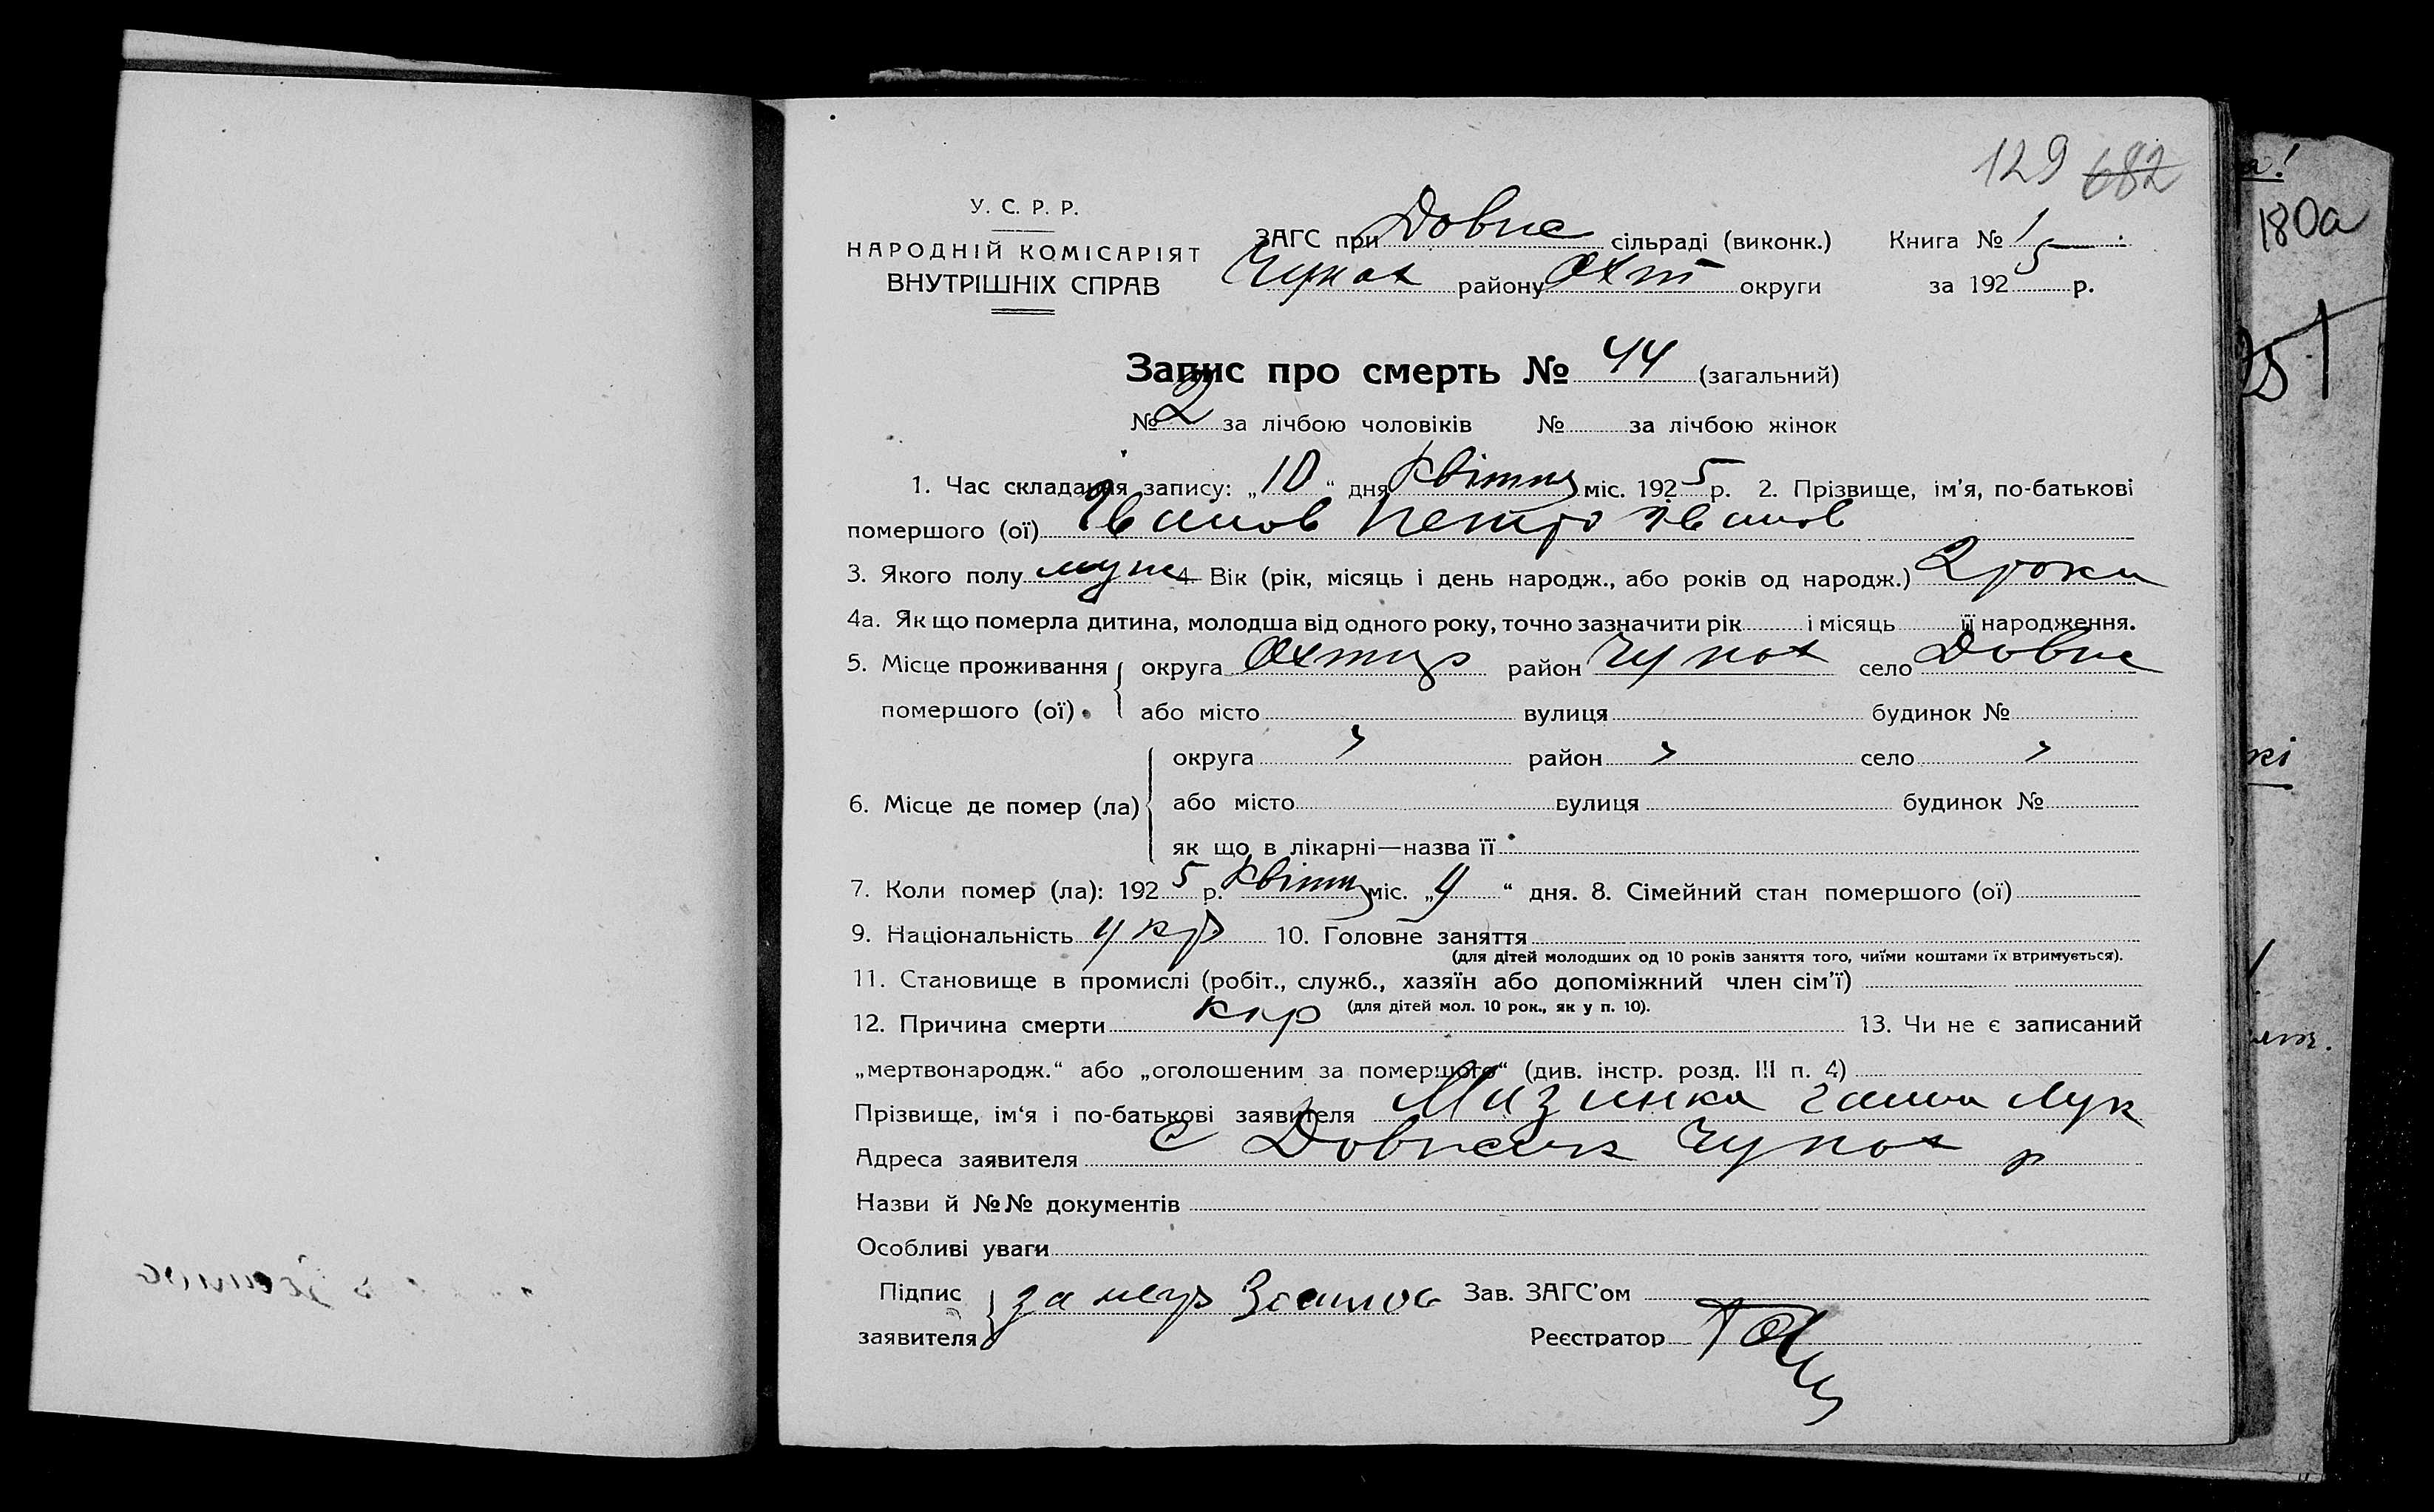 129 682
У. С. Р. Р.
НАРОДНІЙ КОМІСАРІЯТ
ВНУТРІШНІХ СПРАВ
ЗАГС при Довже сільраді (виконк.) Книга № 1
Чупах району Охт округи за 1925 р.
Запис про смерть № 44 (загальний)
№ 2 за лічбою чоловіків № за лічбою жінок
1. Час складання запису: „10“ дня Квітня міс. 1925 р. 2. Прізвище, ім'я, по-батькові
помершого (ої) Іванов Петро Іванов
3. Якого полу муж 4. Вік (рік, місяць і день народж., або років од народж.) 2 роки
4а. Як що померла дитина, молодша від одного року, точно зазначити рік і місяць її народження.
5. Місце проживання округа Охтир район Чупах село Довже
помершого (ої) або місто вулиця будинок №
округа " район " село "
6. Місце де помер (ла) або місто вулиця будинок №
як що в лікарні—назва її
7. Коли помер (ла): 1925 р. Квітня міс. „9“ дня. 8. Сімейний стан помершого (ої)
9. Національність укр 10. Головне заняття
(для дітей молодших од 10 років заняття того, чиїми коштами їх втримується).
11. Становище в промислі (робіт., служб., хазяїн або допоміжний член сім'ї)
(для дітей мол. 10 рок., як у п. 10).
12. Причина смерти кір 13. Чи не є записаний
„мертвонародж.“ або „оголошеним за помершого“ (див. інстр. розд. III п. 4)
Прізвище, ім'я і по-батькові заявителя Мизинка Ганна Лук
Адреса заявителя с Чупах р
Назви й №№ документів
Особливі уваги
Підпис за неу Зав. ЗАГС'ом
заявителя Реєстратор
180а